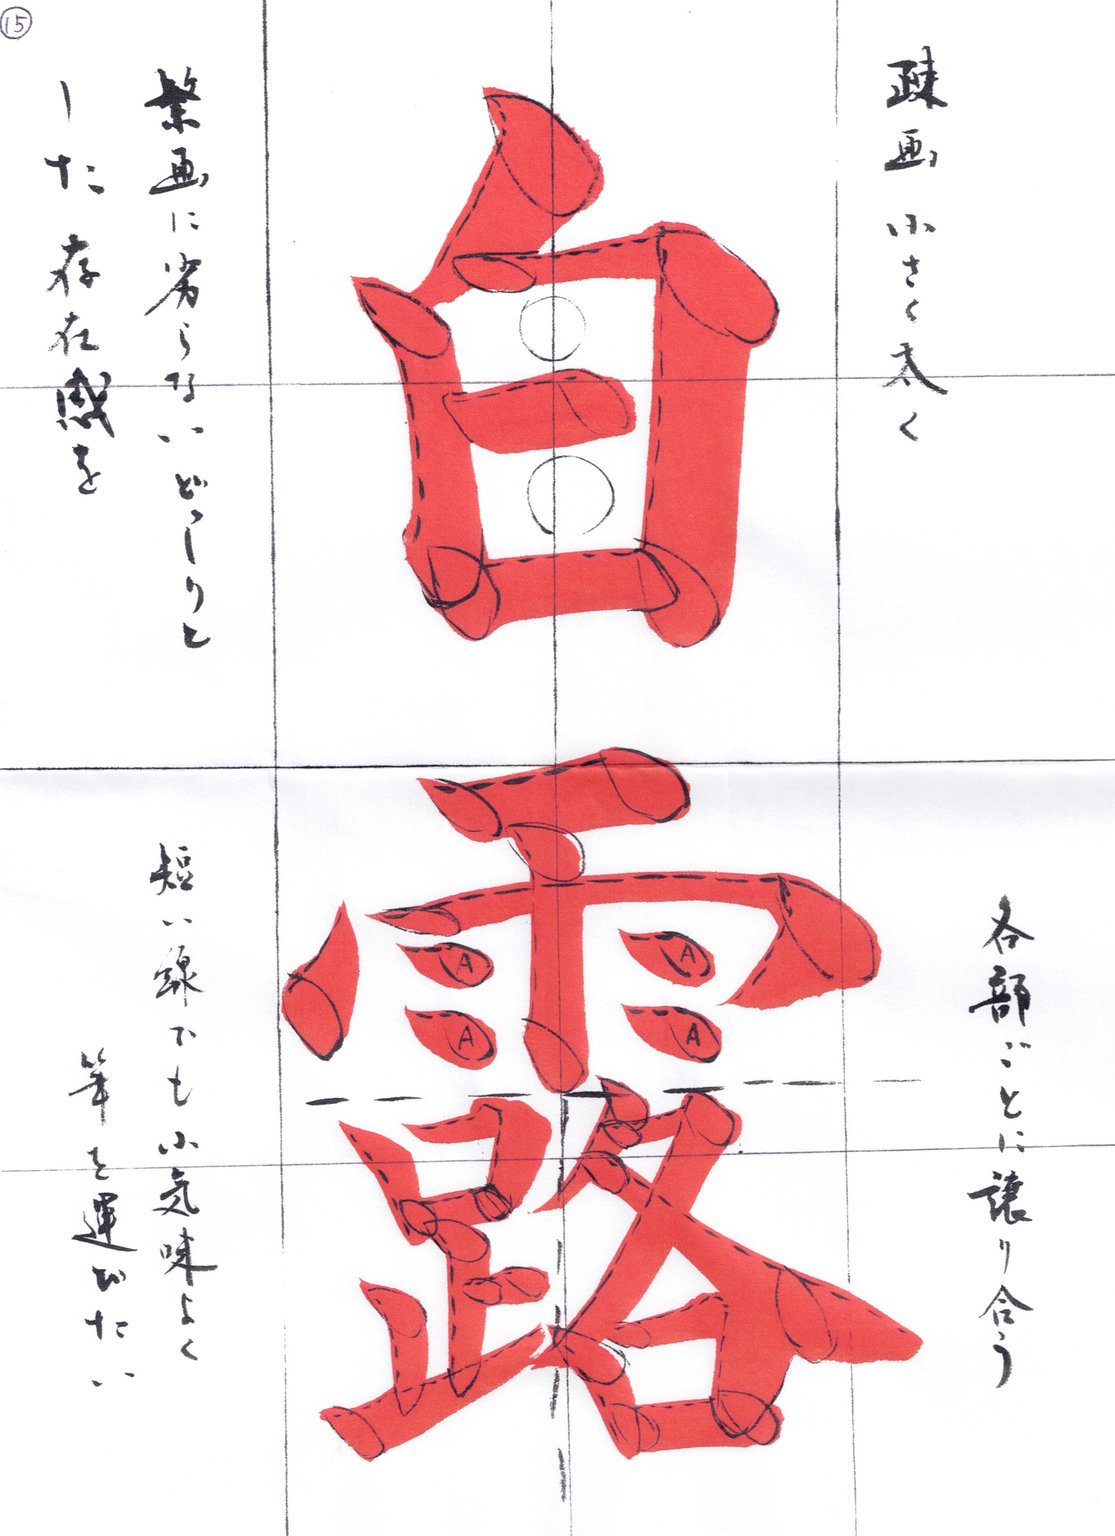 ⑮
疎画 小さく太く
白
繁画に劣らないどっしりと
した存在感を
各部ごとに譲り合う
露
A A
A A
短い線でも小気味よく
筆を運びたい